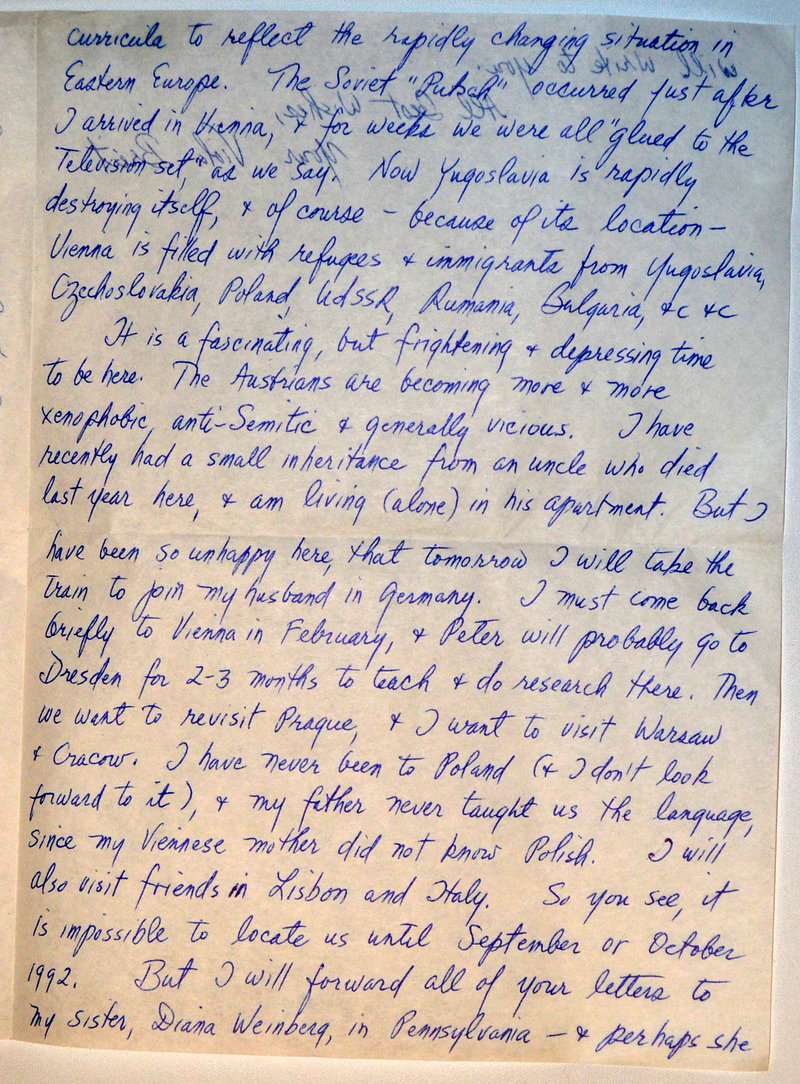 curricula to reflect the rapidly changing situation in
Eastern Europe. The Soviet "Putsch" occurred just after
I arrived in Vienna, & for weeks we were all "glued to the
Television set," as we say. Now Yugoslavia is rapidly
destroying itself, & of course – because of its location –
Vienna is filled with refugees & immigrants from Yugoslavia,
Czechoslovakia, Poland, UdSSR, Rumania, Bulgaria, &c &c
It is a fascinating, but frightening & depressing time
to be here. The Austrians are becoming more & more
xenophobic, anti-Semitic & generally vicious. I have
recently had a small inheritance from an uncle who died
last year here, & am living (alone) in his apartment. But I
have been so unhappy here, that tomorrow I will take the
train to join my husband in Germany. I must come back
briefly to Vienna in February, & Peter will probably go to
Dresden for 2-3 months to teach & do research there. Then
we want to revisit Prague, & I want to visit Warsaw
& Cracow. I have never been to Poland (& I don't look
forward to it), & my father never taught us the language,
since my Viennese mother did not know Polish. I will
also visit friends in Lisbon and Italy. So you see, it
is impossible to locate us until September or October
1992. But I will forward all of your letters to
my sister, Diana Weinberg, in Pennsylvania – & perhaps she
will write to you.
All Best Wishes,
Your